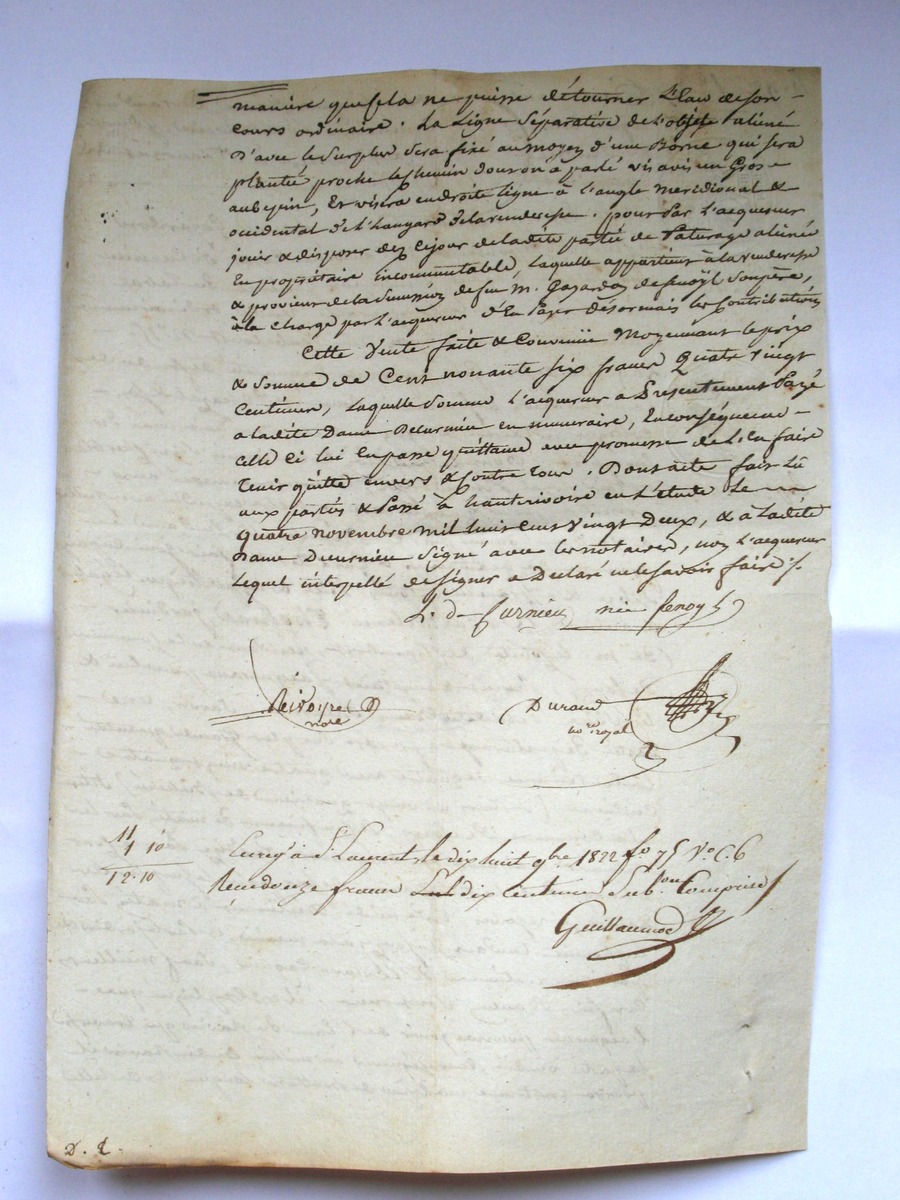 manière que cela ne puisse détourner l'Eau de son
cours ordinaire. La Ligne Séparative de l'objet aliéné
D'avec le Surplus Sera fixé au moyen d'une Borne qui sera
plantée proche le chemin dont on a parlé vis avis un Gros
aubepin, Et visera en droite ligne à l'angle Meridional &
occidental de l'hangard de la venderesse. pour par l'acquereur
jouir & disposer dez cejour de ladite partie de Paturage aliénée
En propriétaire incommutable, Laquelle appartient à la venderesse
& provient de la Succession de feu m. de son père,
à la Charge par l'acquereur d'En Payer Désormais les Contributions
Cette Vente faite & Convenüe Moyennant le prix
& Somme de Cent nonante Six francs Quatre vingt
Centimes, Laquelle Somme l'acquereur a Présentement Payé
a ladite Dame Decurnieu en numeraire, En conséquence
celle Ci lui En passe quittance avec promesse de L'en faire
Tenir quitte envers & contre tous. Dont acte fait Lû
aux parties & Passé à hauterivoire en L'étude Le
quatre novembre mil huit cent vingt Deux, & a Ladite
Dame Decurnieu Signé avec les notaires, non l'acquereur
Lequel interpellé de signer a Declaré ne le savoir faire /.
L. de Curnieu née fenoyl
Rivoire
notre
Durand
nore royal
11
1 10
12.10
Enregé à St Laurent, le dix huit 9bre 1822 fo 75 Vo C. 6
Reçu douze francs dix centimes Subon Comprise
Guillaumod
D. L.